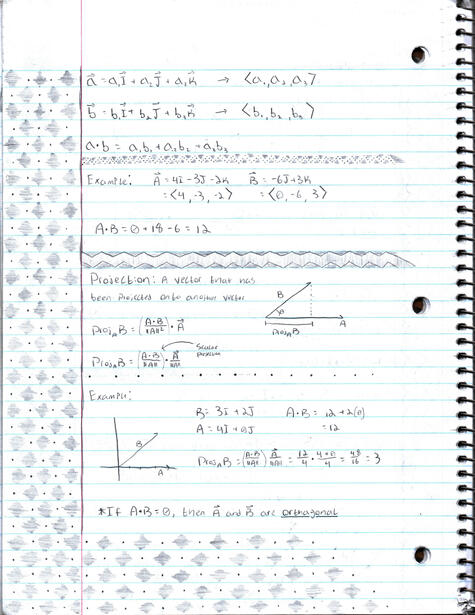 a⃗ = a₁I⃗ + a₂J⃗ + a₃K⃗ → ⟨a₁, a₂, a₃⟩
b⃗ = b₁I⃗ + b₂J⃗ + b₃K⃗ → ⟨b₁, b₂, b₃⟩
a•b = a₁b₁ + a₂b₂ + a₃b₃
Example: A⃗ = 4I - 3J - 2K B⃗ = -6J + 3K
= ⟨4, -3, -2⟩ = ⟨0, -6, 3⟩
A•B = 0 + 18 - 6 = 12
Projection: A vector that has
been projected onto another vector
B
A
Proj_A B
Proj_A B = (A•B / ‖A‖²) • A⃗
Scalar
Projection
Proj_A B = (A•B / ‖A‖) • A⃗ / ‖A‖
Example:
B = 3I + 2J A•B = 12 + 2(0)
A = 4I + 0J = 12
B
A
Proj_A B = (A•B / ‖A‖) A⃗ / ‖A‖ = 12/4 • 4+0/4 = 48/16 = 3
*If A•B = 0, then A⃗ and B⃗ are orthogonal